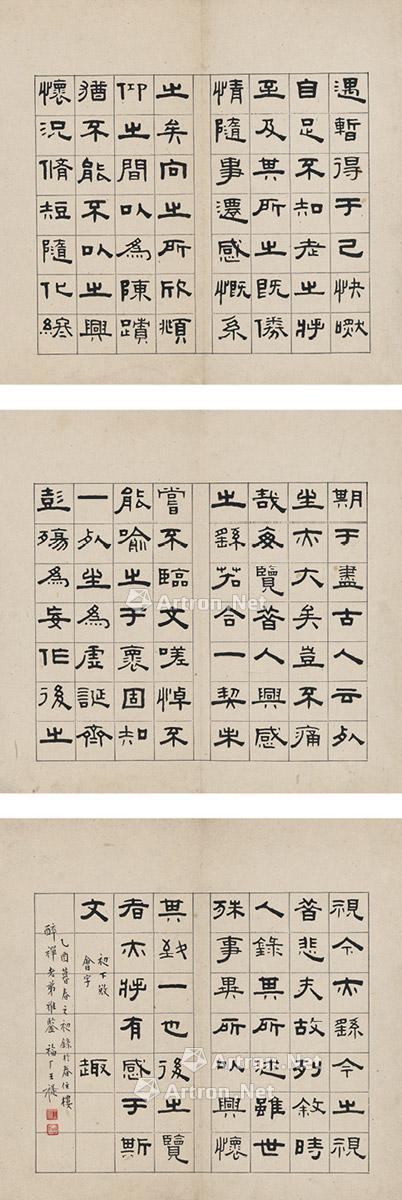 遇暫得于己快然
自足不知老之將
至及其所之既倦
情隨事遷感慨系
之矣向之所欣頫
仰之間以為陳蹟
猶不能不以之興
懷況脩短隨化終
期于盡古人云死
生亦大矣豈不痛
哉每覽昔人興感
之繇若合一契未
嘗不臨文嗟悼不
能喻之于褱固知
一死生為虛誕齊
彭殤為妄作後之
視今亦繇今之視
昔悲夫故列敘時
人錄其所述雖世
殊事異所以興懷
其致一也後之覽
者亦將有感于斯
文 趣
初下敚
會字
乙酉暮春之初錄於春住樓
醉禪老弟雅鑒 福厂王禔
Artron.Net
Artron.Net
Artron.Net